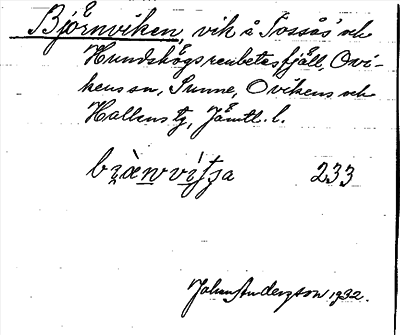 Björnviken, vik å Tossås' och
Hundshögs renbetesfjäll, Ovi-
kens sn, Sunne, Ovikens och
Hallens tg, Jämtl. l.
233
Johan Anderzson 1932.